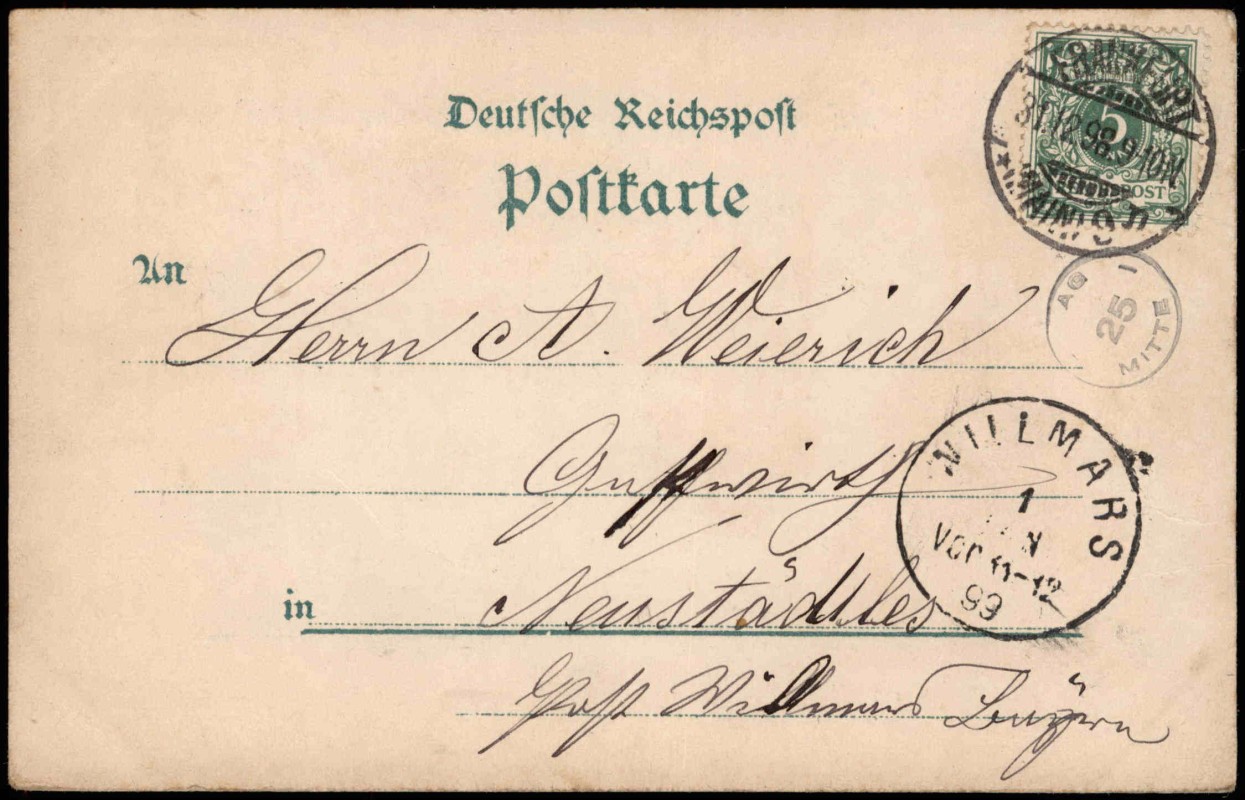 Deutsche Reichspost
Postkarte
An
Herrn A. Weierich
Gastwirth
in Neustädtles
Post Willmars Bayern
FRANKFURT
31.12.98.9-10N.
(MAIN) 9
5
REICHSPOST
AG I
25
MITTE
WILLMARS
1
JAN
Vor 11-12
99